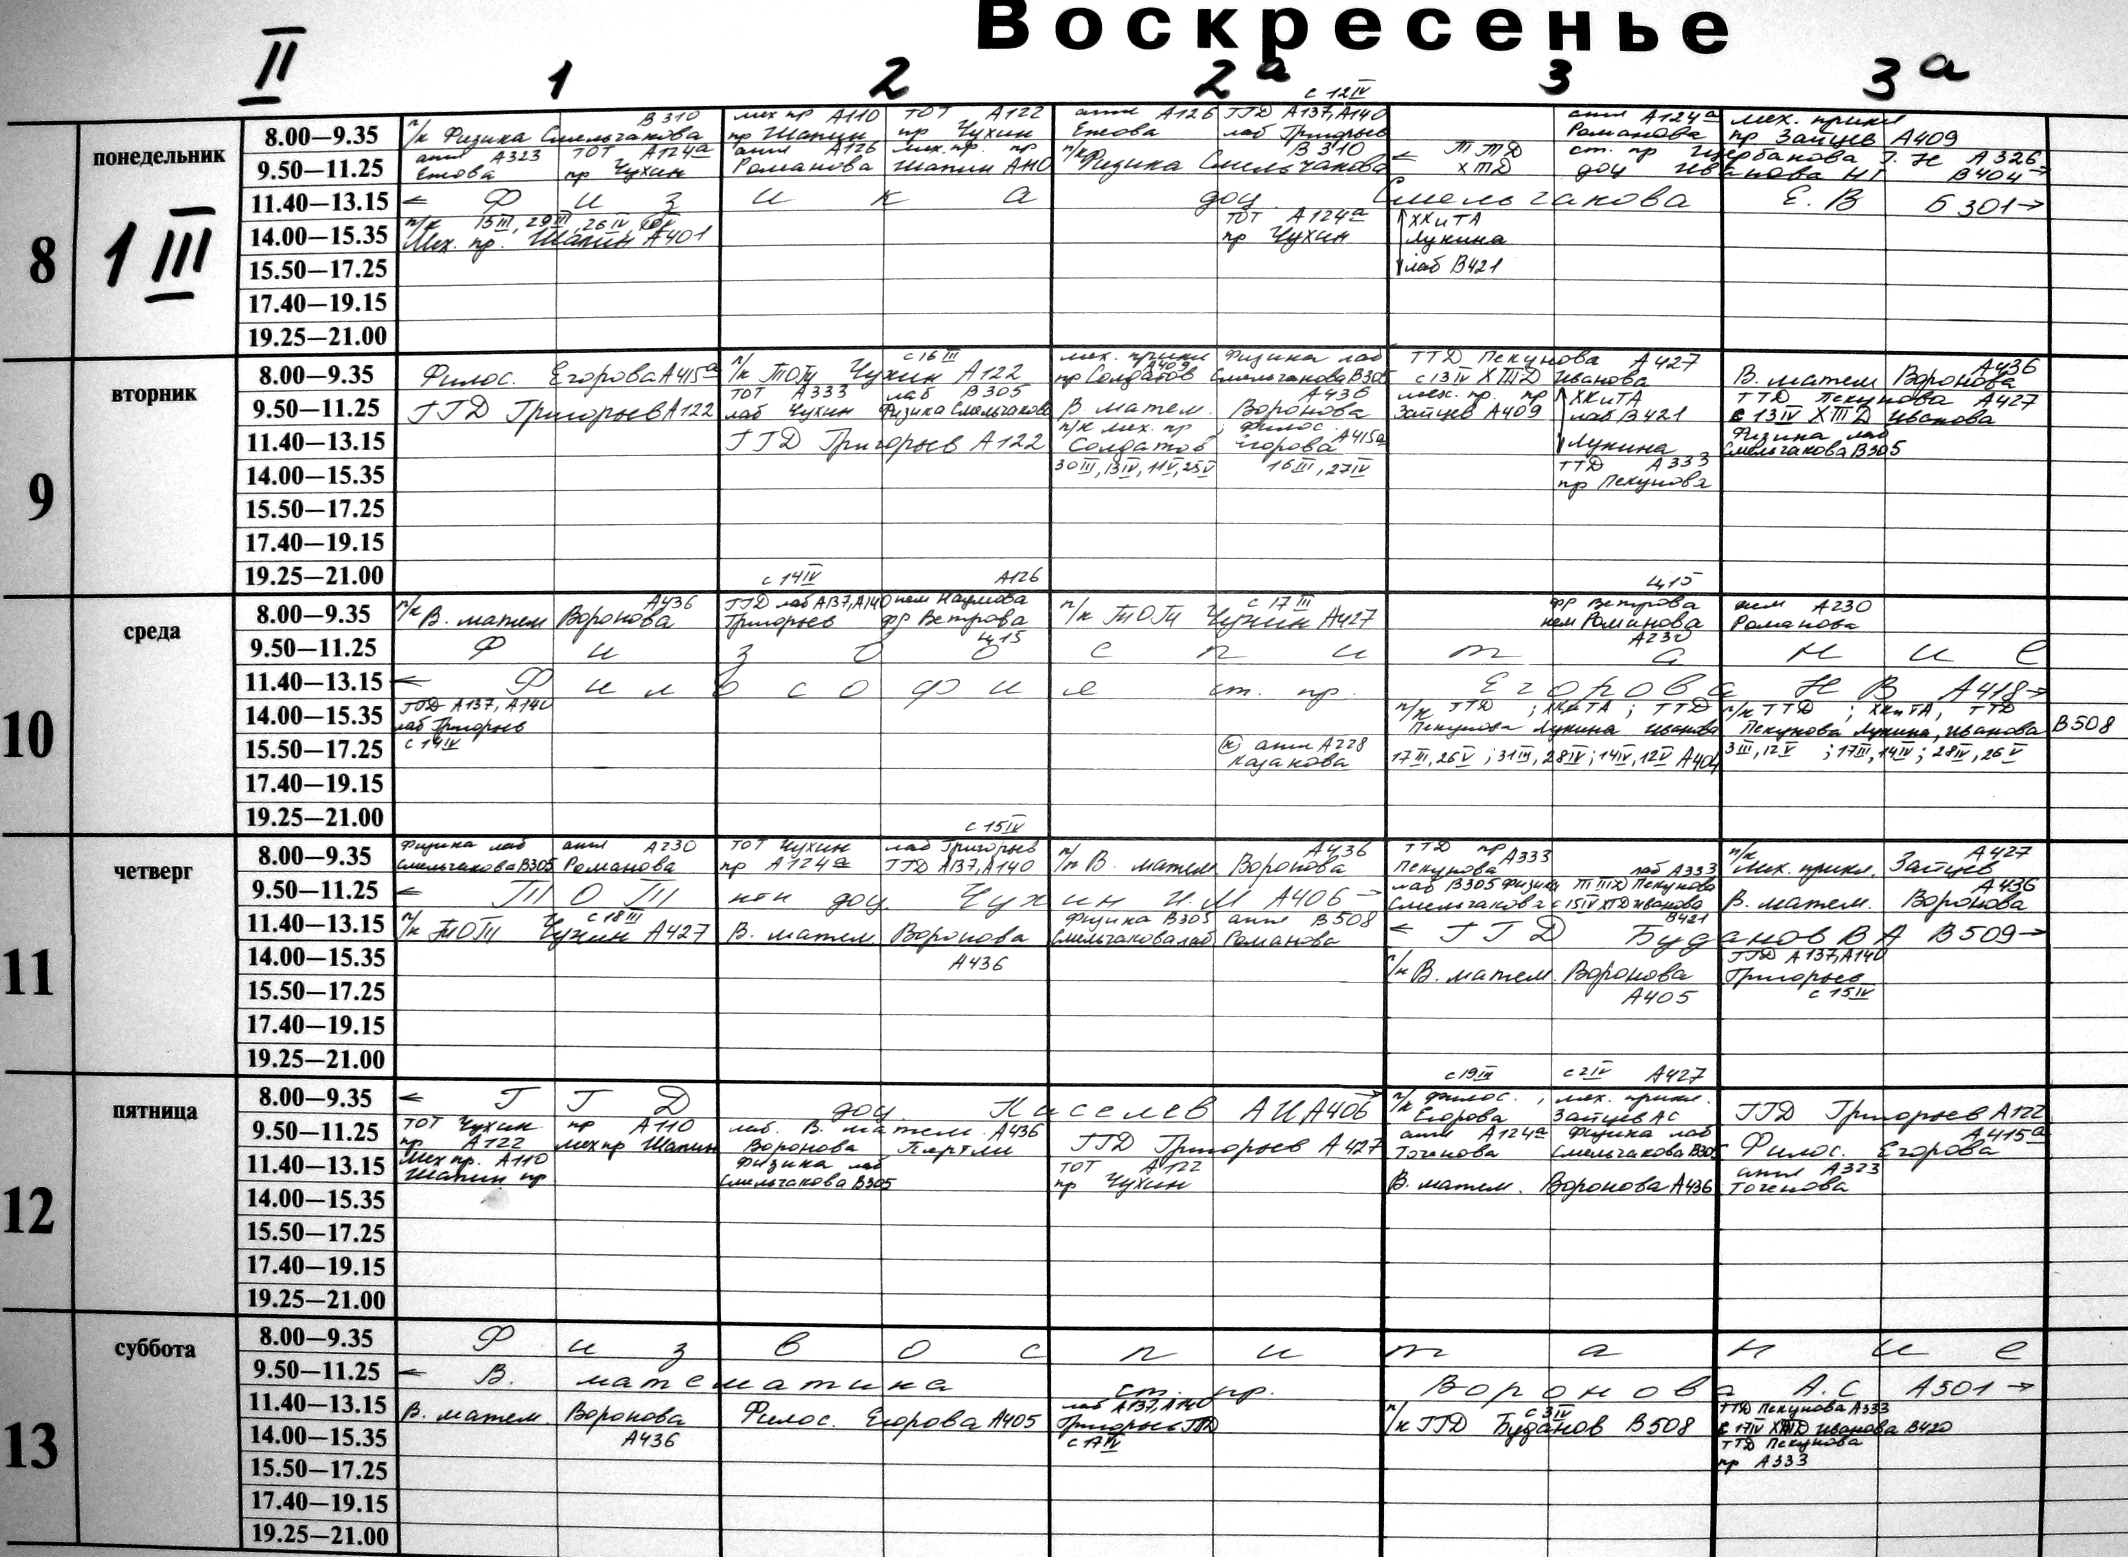 Воскресенье
II 1 2 2а 3 3а
с 12 IV
8
понедельник
1 III
8.00—9.35
п/к Физика Смельчакова В310
мех пр А110 пр Шапин
ТОТ А122 пр Чухин
англ А126 Ежова
ГГД А137, А140 лаб Григорьев
англ А124а Романова
мех. прикл пр Зайцев А409
9.50—11.25
англ А323 Ежова
ТОТ А124а пр Чухин
англ А126 Романова
мех. пр. пр Шапин А110
п/к Физика Смельчакова В310
← ТТД ст. пр Щербакова Т. Н А326
ХТД доц Иванова НГ В404→
11.40—13.15
← Физика доц. Смельчакова Е. В Б301→
14.00—15.35
п/к 15 III, 29 III, 26 IV
Мех. пр. Шапин А401
ТОТ А124а пр Чухин
ХКиТА
Лукина
15.50—17.25
лаб В421
17.40—19.15
19.25—21.00
9
вторник
8.00—9.35
Филос. Егорова А415а
с 16 III
п/к ТОТ Чухин А122
мех. прикл А409 пр Солдатов
Физика лаб Смельчакова В305
ТТД Пекунова А427
с 13 IV ХТД Иванова
В. матем Воронова А436
9.50—11.25
ГГД Григорьев А122
ТОТ А333 лаб Чухин
лаб В305 Физика Смельчакова
В матем. Воронова А436
мех. пр. пр Зайцев А409
ХКиТА лаб В421
ТТД Пекунова А427
с 13 IV ХТД Иванова
11.40—13.15
ГГД Григорьев А122
п/к мех. пр ; филос. Солдатов Егорова А415а
Лукина
Физика лаб Смельчакова В305
14.00—15.35
30 III, 13 IV, 11 V, 25 V 16 III, 27 IV
ТТД А333
пр Пекунова
15.50—17.25
17.40—19.15
19.25—21.00
10
среда
с 14 IV А126
Ц15
8.00—9.35
п/к В. матем Воронова А436
ГГД лаб А137, А140 Григорьев
нем Наумова
фр Ветрова Ц15
с 17 III
п/к ТОТ Чухин А427
фр Ветрова
нем Романова А230
нем А230 Романова
9.50—11.25
Физвоспитание
11.40—13.15
← Философия ст. пр. Егорова НВ А418→
14.00—15.35
ГГД А137, А140
лаб Григорьев
п/к ТТД ; ХКиТА ; ТТД
Пекунова Лукина Иванова
п/к ТТД ; ХКиТА, ТТД
Пекунова Лукина, Иванова В508
15.50—17.25
с 14 IV
к англ А228
Казакова
17 III, 26 V ; 31 III, 28 IV ; 14 IV, 12 V А404
3 III, 12 V ; 17 III, 14 IV ; 28 IV, 26 V
17.40—19.15
19.25—21.00
11
четверг
с 15 IV
8.00—9.35
Физика лаб Смельчакова В305
англ А230 Романова
ТОТ Чухин пр А124а
лаб Григорьев ГГД А137, А140
п/к В. матем Воронова А436
ТТД пр Пекунова А333
п/к Мех. прикл. Зайцев А427
9.50—11.25
← ТОТ доц. Чухин И.М А406→
лаб В305 Физика Смельчакова
лаб А333 ТТД Пекунова
с 15 IV ХТД Иванова В421
В. матем. Воронова А436
11.40—13.15
с 18 III
п/к ТОТ Чухин А427
В. матем Воронова
Физика В305 Смельчакова лаб
англ В508 Романова
← ГГД Буданов ВА В509→
14.00—15.35
А436
п/к В. матем. Воронова
ГГД А137, А140
Григорьев
15.50—17.25
А405
с 15 IV
17.40—19.15
19.25—21.00
12
пятница
с 19 III с 2 IV А427
8.00—9.35
← ГГД доц. Киселев АИ А406→
п/к филос. ; мех. прикл.
Егорова Зайцев АС
ГГД Григорьев А122
9.50—11.25
ТОТ Чухин пр А122
пр А110 мех пр Шапин
лаб. В. матем. А436
Воронова
ГГД Григорьев А427
англ А124а Точенова
Физика лаб Смельчакова В305
Филос. Егорова А415а
11.40—13.15
Мех пр. А110 Шапин пр
Физика лаб Смельчакова В305
ТОТ А122 пр Чухин
В. матем. Воронова А436
англ А323 Точенова
14.00—15.35
15.50—17.25
17.40—19.15
19.25—21.00
13
суббота
8.00—9.35
Физвоспитание
9.50—11.25
← В. математика ст. пр. Воронова А.С А501→
11.40—13.15
В. матем. Воронова
Филос. Егорова А405
лаб А137, А140
Григорьев ГГД
с 3 IV
п/к ГГД Буданов В508
ТТД Пекунова А333
с 17 IV ХТД Иванова В420
14.00—15.35
А436
с 17 IV
ТТД Пекунова
пр А333
15.50—17.25
17.40—19.15
19.25—21.00